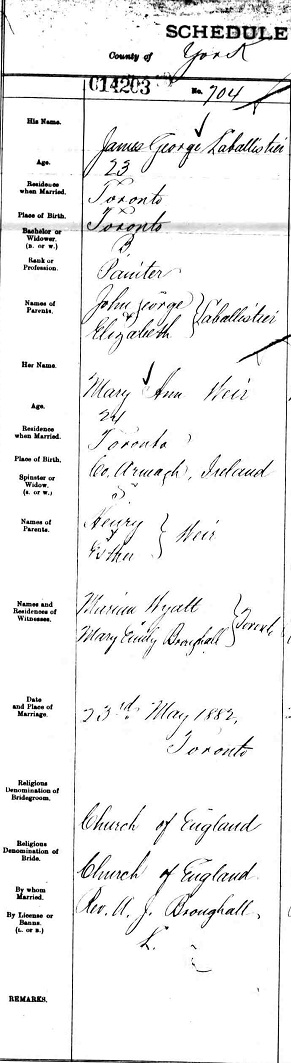 SCHEDULE
County of York
014203 No. 704
His Name. James George Laballistier
Age. 23
Residence when Married. Toronto
Place of Birth. Toronto
Bachelor or Widower. (B. or W.) B
Rank or Profession. Painter
Names of Parents. John George & Elizabeth } Laballistier
Her Name. Mary Ann Weir
Age. 24
Residence when Married. Toronto
Place of Birth. Co. Armagh, Ireland
Spinster or Widow. (S. or W.) S.
Names of Parents. Henry & Esther } Weir
Names and Residences of Witnesses. Wyatt
Mary Emily Broughall } Toronto
Date and Place of Marriage. 23rd May 1882,
Toronto
Religious Denomination of Bridegroom. Church of England
Religious Denomination of Bride. Church of England
By whom Married. Rev. A. J. Broughall,
By License or Banns. (L. or B.) L.
REMARKS.